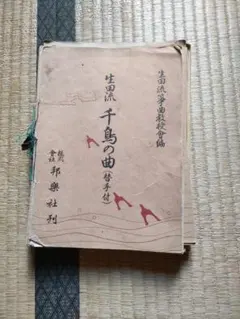 生田流箏曲教授會編
生田流
千鳥の曲(替手付)
株式會社
邦樂社刊